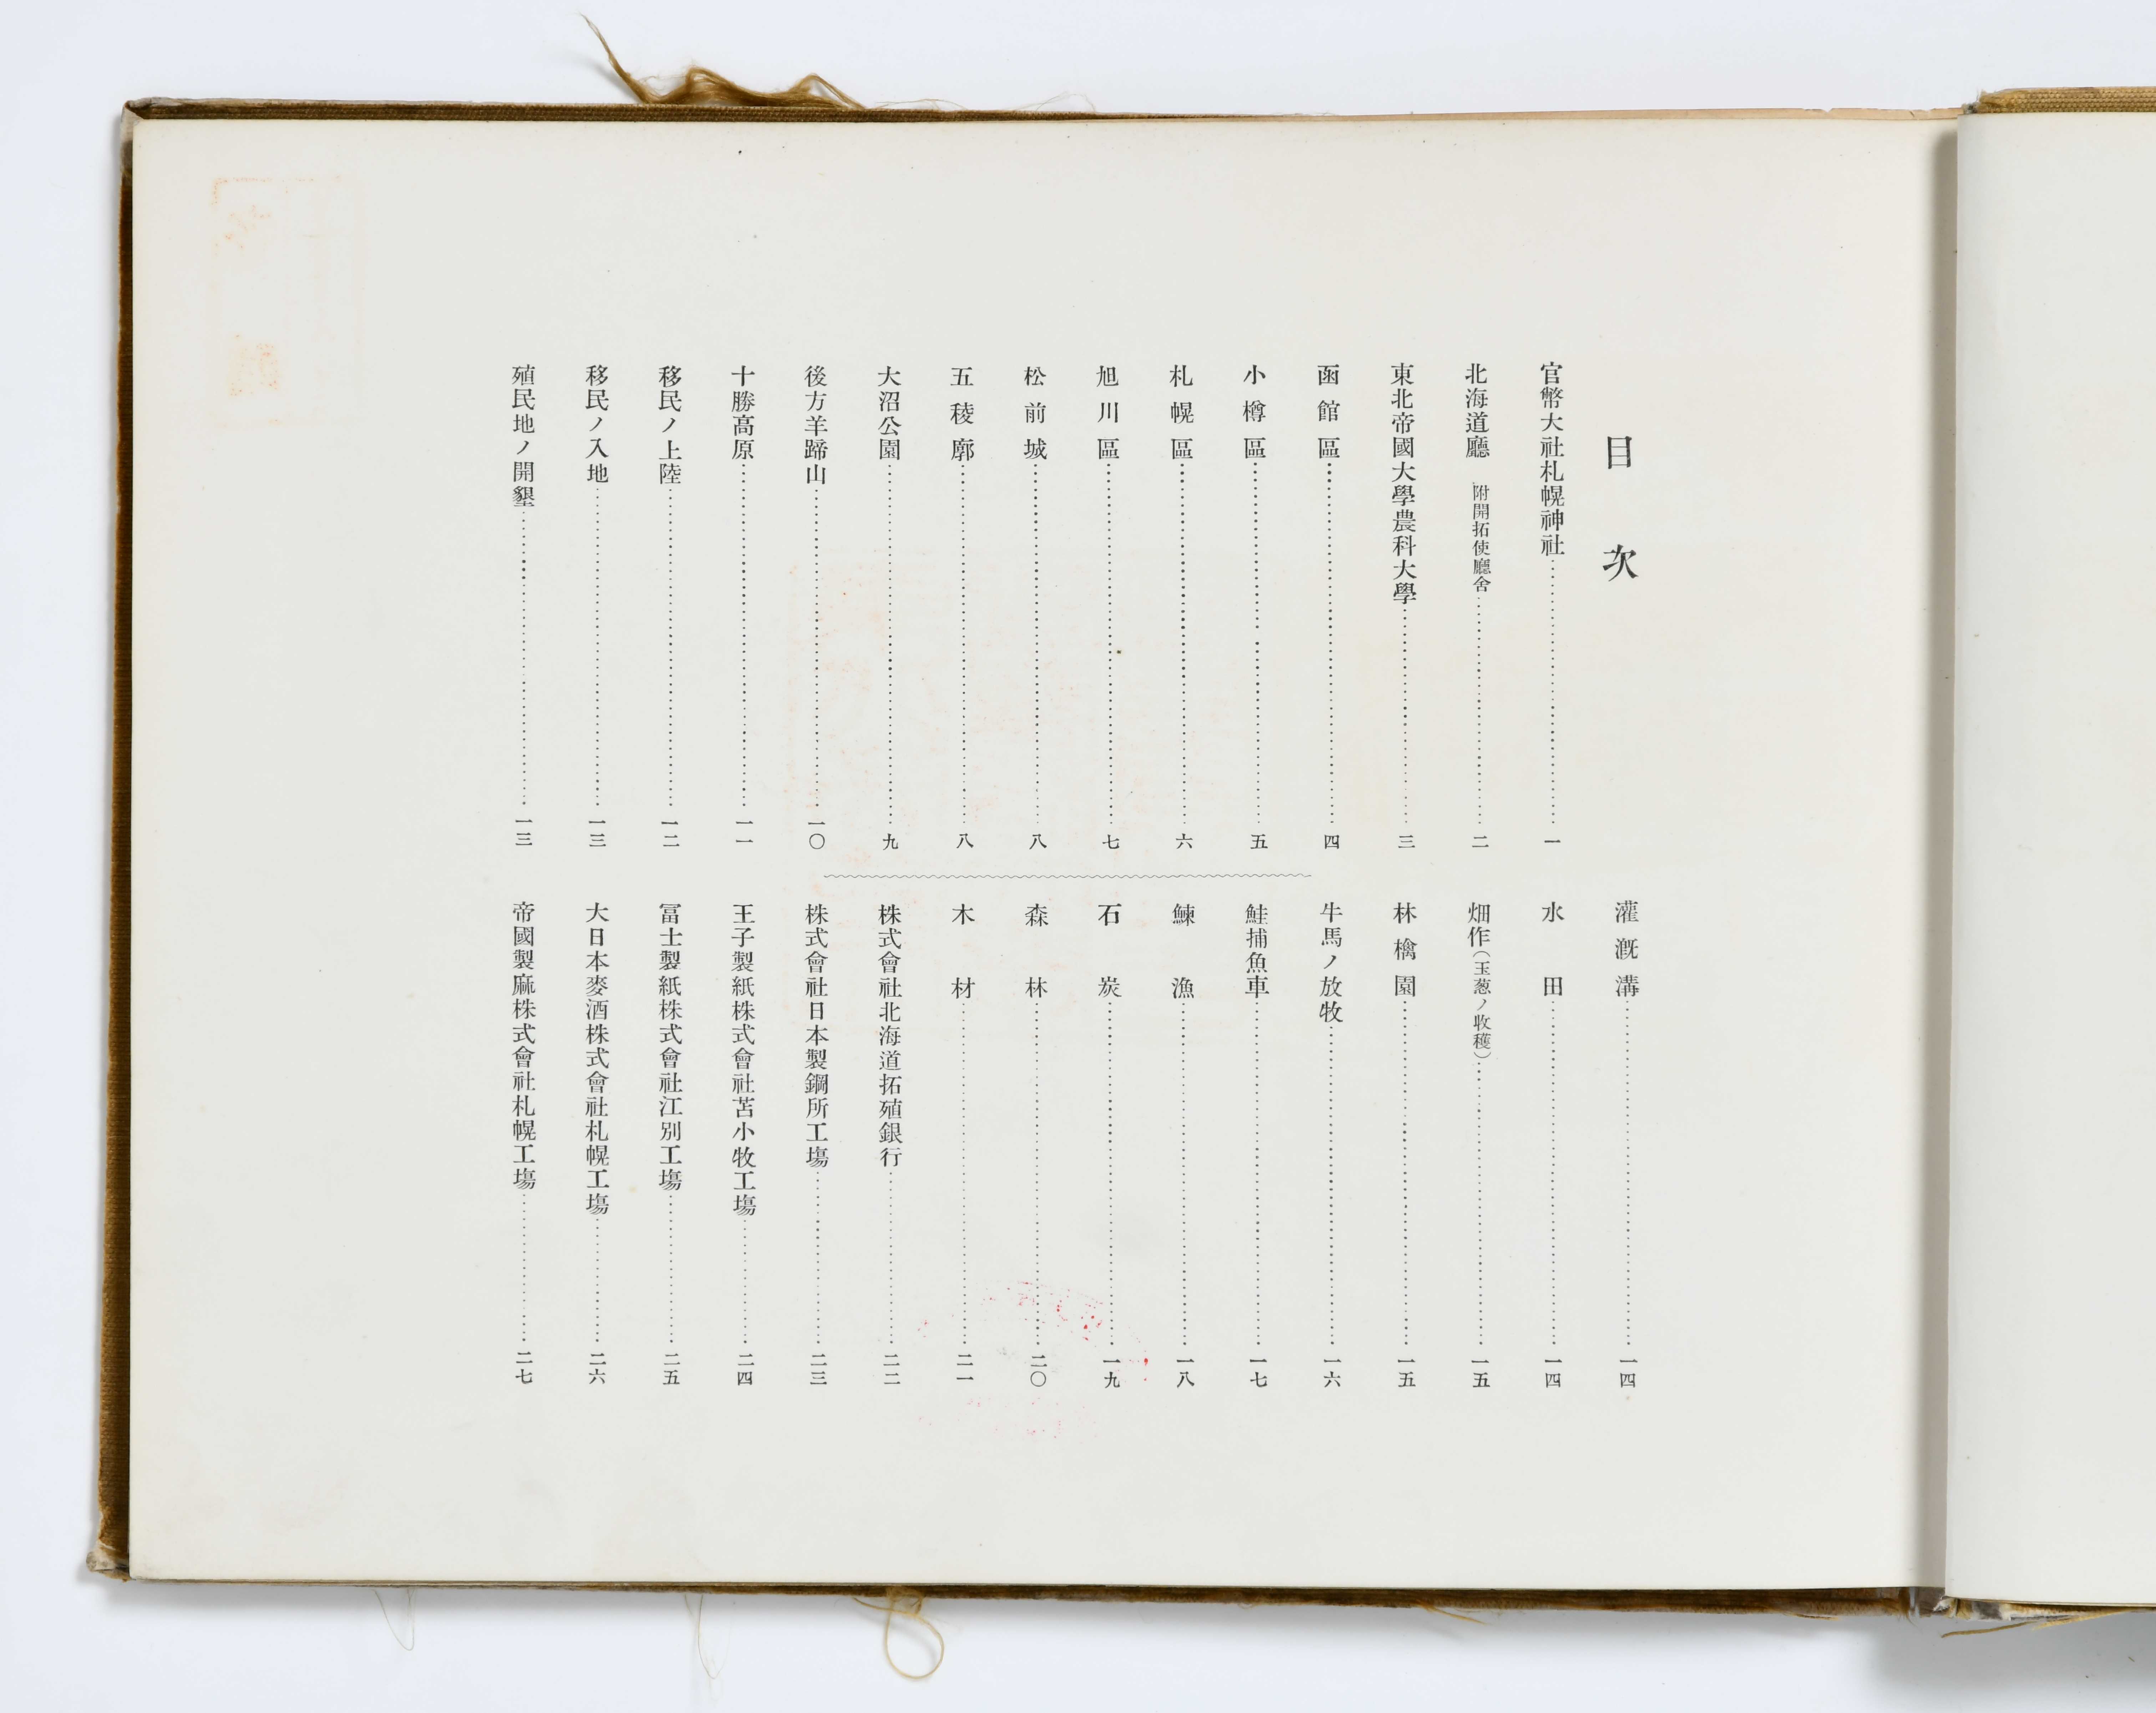 目次
官幣大社札幌神社…………一
北海道廳 附開拓使廳舍…………二
東北帝國大學農科大學…………三
函館區…………四
小樽區…………五
札幌區…………六
旭川區…………七
松前城…………八
五稜廓…………八
大沼公園…………九
後方羊蹄山…………一〇
十勝高原…………一一
移民ノ上陸…………一二
移民ノ入地…………一三
殖民地ノ開墾…………一三
灌漑溝…………一四
水田…………一四
畑作(玉葱ノ收穫)…………一五
林檎園…………一五
牛馬ノ放牧…………一六
鮭捕魚車…………一七
鰊漁…………一八
石炭…………一九
森林…………二〇
木材…………二一
株式會社北海道拓殖銀行…………二二
株式會社日本製鋼所工塲…………二三
王子製紙株式會社苫小牧工塲…………二四
冨士製紙株式會社江別工塲…………二五
大日本麥酒株式會社札幌工塲…………二六
帝國製麻株式會社札幌工塲…………二七